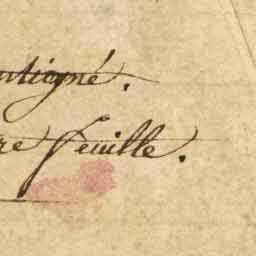 ntigné.
re feuille.